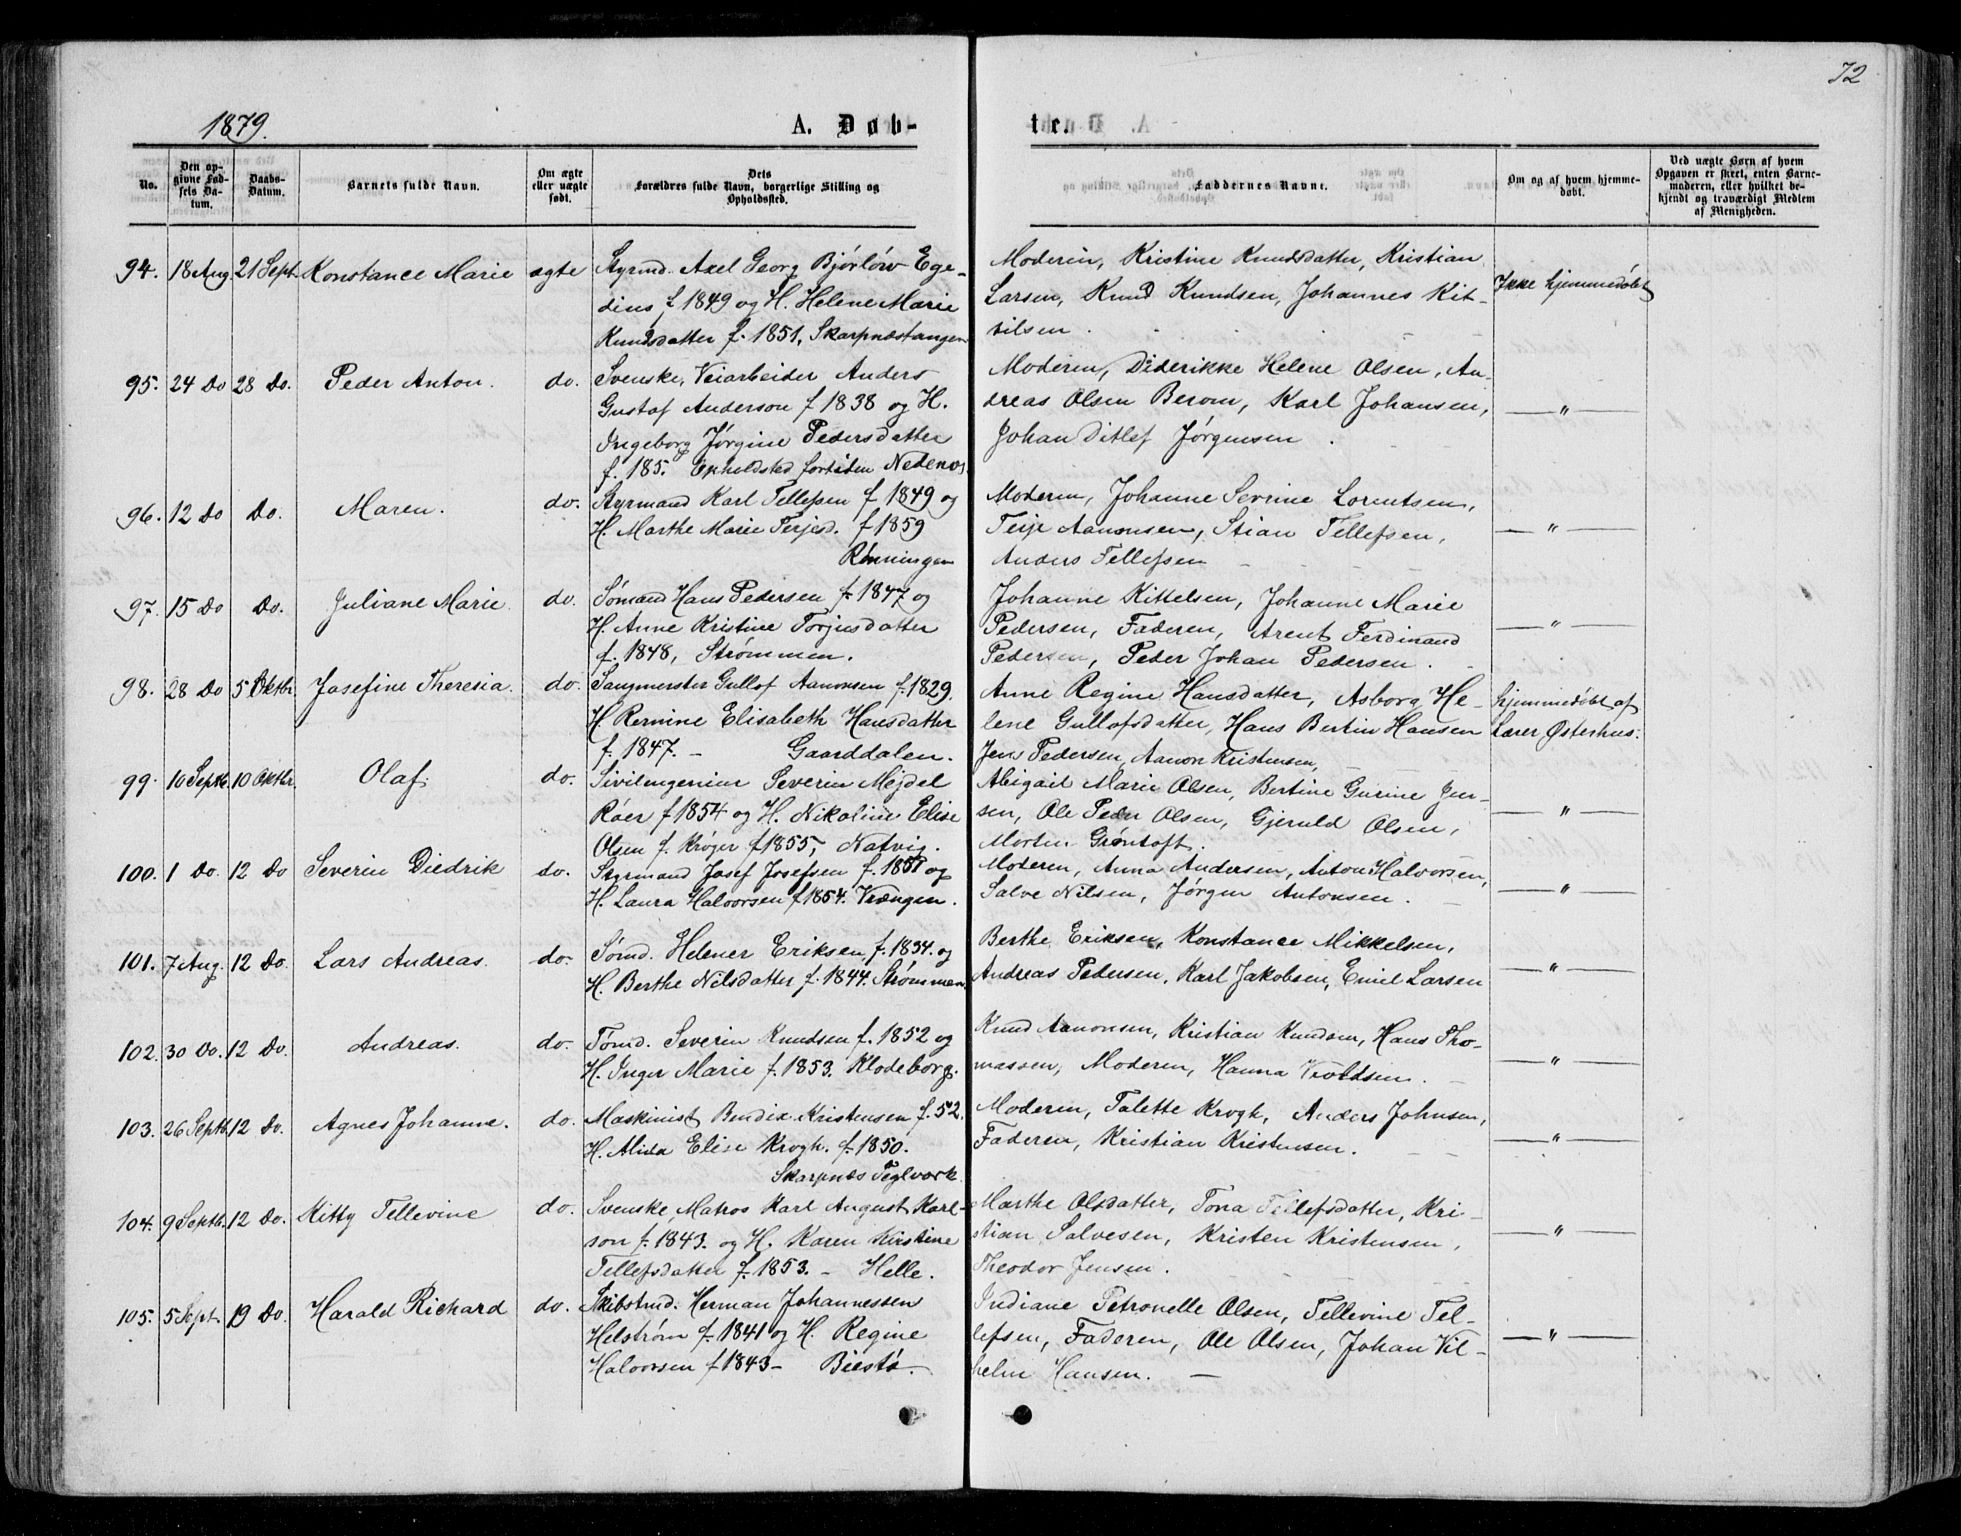 72
1879.
A. Døb-
te.
No.
Den op-
givne Fød-
sels Da-
tum.
Daabs-
Datum.
Barnets fulde Navn.
Om ægte
eller uægte
født.
Dets
Forældres fulde Navn, borgerlige Stilling og
Opholdssted.
Faddernes Navne.
Om og af hvem hjemme-
døbt.
Ved uægte Børn af hvem
Opgaven er skeet, enten Barne-
moderen, eller hvilket be-
kjendt og troværdigt Medlem
af Menigheden.
94. 18 Aug. 21 Sept. Konstance Marie ægte
Styrmd. Axel Georg Bjørlöw Ege-
dius f. 1849 og H. Helene Marie
Knudsdatter f. 1851, Skarpnæstangen
Moderen, Kristine Knudsdatter, Kristian
Larsen, Knud Knudsen, Johannes Kit-
tilsen.
Ikke hjemmedøbt
95. 24 Do 28 Do. Peder Anton. do.
Svenske, Veiarbeider Anders
Gustaf Anderson f 1838 og H.
Ingeborg Jørgine Pedersdatter
f. 185. Opholdsted fortiden Nedenæs.
Moderen, Diderikke Helene Olsen, An-
dreas Olsen Berom, Karl Johansen,
Johan Ditlef Jørgensen.
— " —
96. 12 Do Do. Maren. do.
Styrmand Karl Tellefsen f 1849 og
H. Marthe Marie Terjesd. f 1859
Rønningen
Moderen, Johanne Sevrine Lorentsen,
Terje Aanonsen, Stian Tellefsen,
Anders Tellefsen
— " —
97. 15 Do Do. Juliane Marie. do.
Sømand Hans Pedersen f. 1847 og
H. Anne Kristine Torjusdatter
f. 1848, Strømmen.
Johanne Kittelsen, Johanne Marie
Pedersen, Faderen, Arent Ferdinand
Pedersen, Peder Johan Pedersen.
— " —
98. 28 Do 5 Oktbr. Josefine Theresia. do.
Saugmester Gullof Aanonsen f. 1829.
H. Rernine Elisabeth Hansdatter
f. 1847. – Gaarddalen.
Anne Regine Hansdatter, Asborg He-
lene Gullofsdatter, Hans Bertin Hansen
Jens Pedersen, Aanon Kristensen,
hjemmedøbt af
Lærer Østerhus.
99. 10 Septb. 10 Oktbr. Olaf. do.
Sivilengeniør Severin Mejdel
Röer f 1854 og H. Nikoline Elise
Olsen f. Krøger f 1855, Natvig.
Abigail Marie Olsen, Bertine Gurine Jen-
sen, Ole Peder Olsen, Gjeruld Olsen,
Morten Grøntoft.
— " —
100. 1 Do. 12 Do Severin Diedrik do.
Styrmand Josef Josefsen f. 1851 og
H. Laura Halvorsen f 1854. Vrængen.
Moderen, Anna Andersen, Anton Halvorsen,
Salve Nilsen, Jørgen Antonsen.
— " —
101. 7 Aug. 12 Do. Lars Andreas. do.
Sømd. Helener Eriksen f. 1834. og
H. Berthe Nilsdatter f. 1844. Strømmen.
Berthe Eriksen, Konstance Mikkelsen,
Andreas Pedersen, Karl Jakobsen, Emil Larsen
— " —
102. 30 Do. 12 Do. Andreas. do.
Tømd. Severin Knudsen f. 1852 og
H. Inger Marie f. 1853. Klodeborg.
Knud Aanonsen, Kristian Knudsen, Hans Tho-
massen, Moderen, Hanna Voldsen.
— " —
103. 26 Septb. 12 Do. Agnes Johanne. do.
Maskinist Bendix Kristensen f. 52.
H. Alida Elise Krogh. f. 1850.
Skarpnæs Teglværk
Moderen, Talette Krogh, Anders Johnsen,
Faderen, Kristian Kristensen.
— " —
104. 9 Septb. 12 Do. Kitty Tellevine do.
Svenske, Matros Karl August Karl-
son f. 1843. og H. Karen Kirstine
Tellefsdatter f. 1853. – Helle.
Marthe Olsdatter, Tona Tellefsdatter, Kri-
stian Salvesen, Kristen Kristensen,
Theodor Jensen.
— " —
105. 5 Sept. 19 Do. Harald Richard do.
Skibstmd. Herman Johannessen
Helstrøm f. 1841 og H. Regine
Halvorsen f 1843 – Biestø.
Indiane Petronelle Olsen, Tellevine Tel-
lefsen, Faderen, Ole Olsen, Johan Vil-
helm Hansen.
— " —